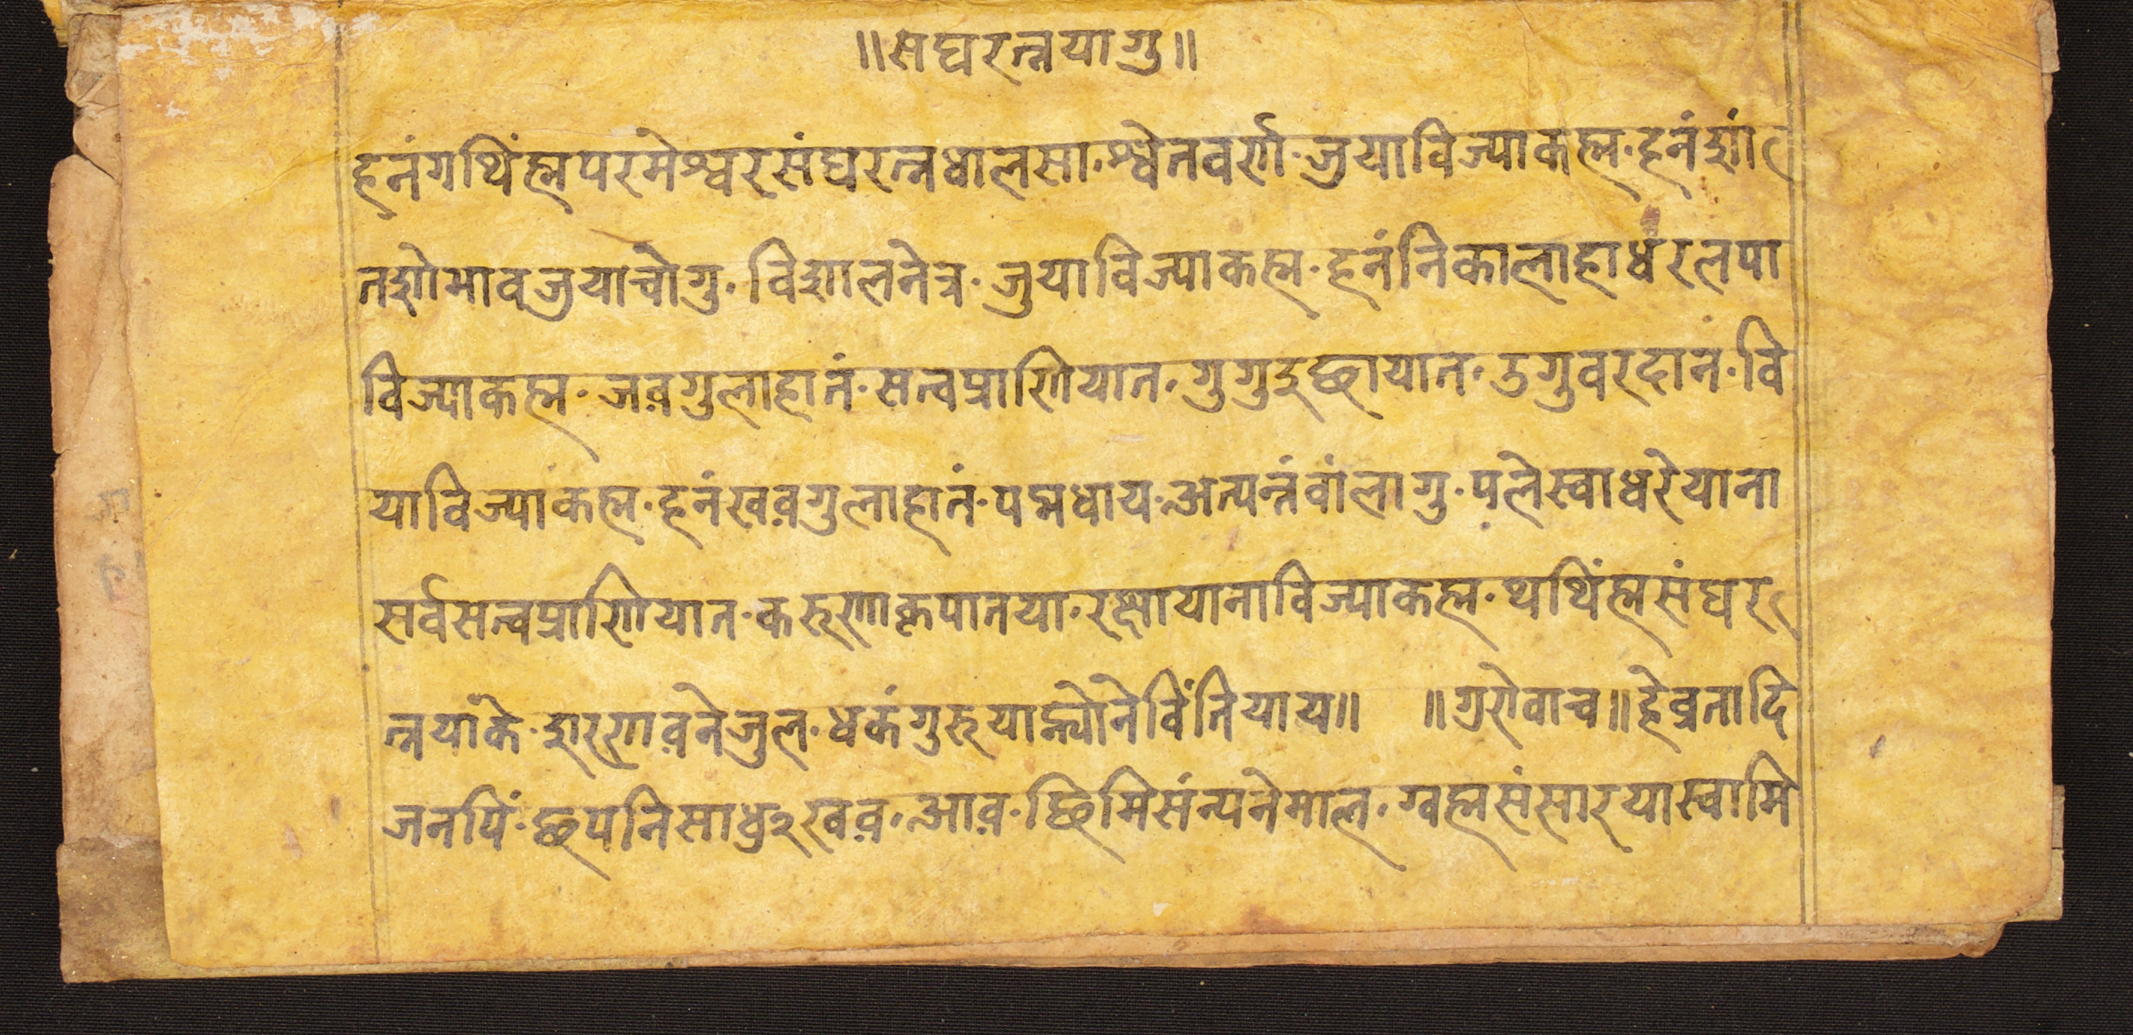 ॥संघरत्नयागु॥
हनंगथिंह्मपरमेश्वरसंघरत्नधालसा·श्वेतवर्ण·जुयाविज्याकह्म·हनंशां
तशोभावजुयाचोंगु·विशालनेत्र·जुयाविज्याकह्म·हनंनिकालाहाधंरलपा
विज्याकह्म·जव़गुलाहातं·सत्वप्राणियात·गुगुइछायात·उगुवरदान·वि
याविज्याकह्म·हनंखव़गुलाहातं·पद्मधाय·अत्यन्तंवांलागु·पलेस्वाधरेयाना
सर्वसत्वप्राणियात·करूणाकृपातया·रक्षायानाविज्याकह्म·थथिंह्मसंघर
त्नयाके·शरणव़नेजुल·धकंगुरूयाह्न्योनेविंतियाय॥ ॥गुरोवाच॥हेव्रतादि
जनपिं·छपनिसाधु२खव़·आव़·छिमिसंन्यनेमाल·ग्वह्मसंसारयास्वामि